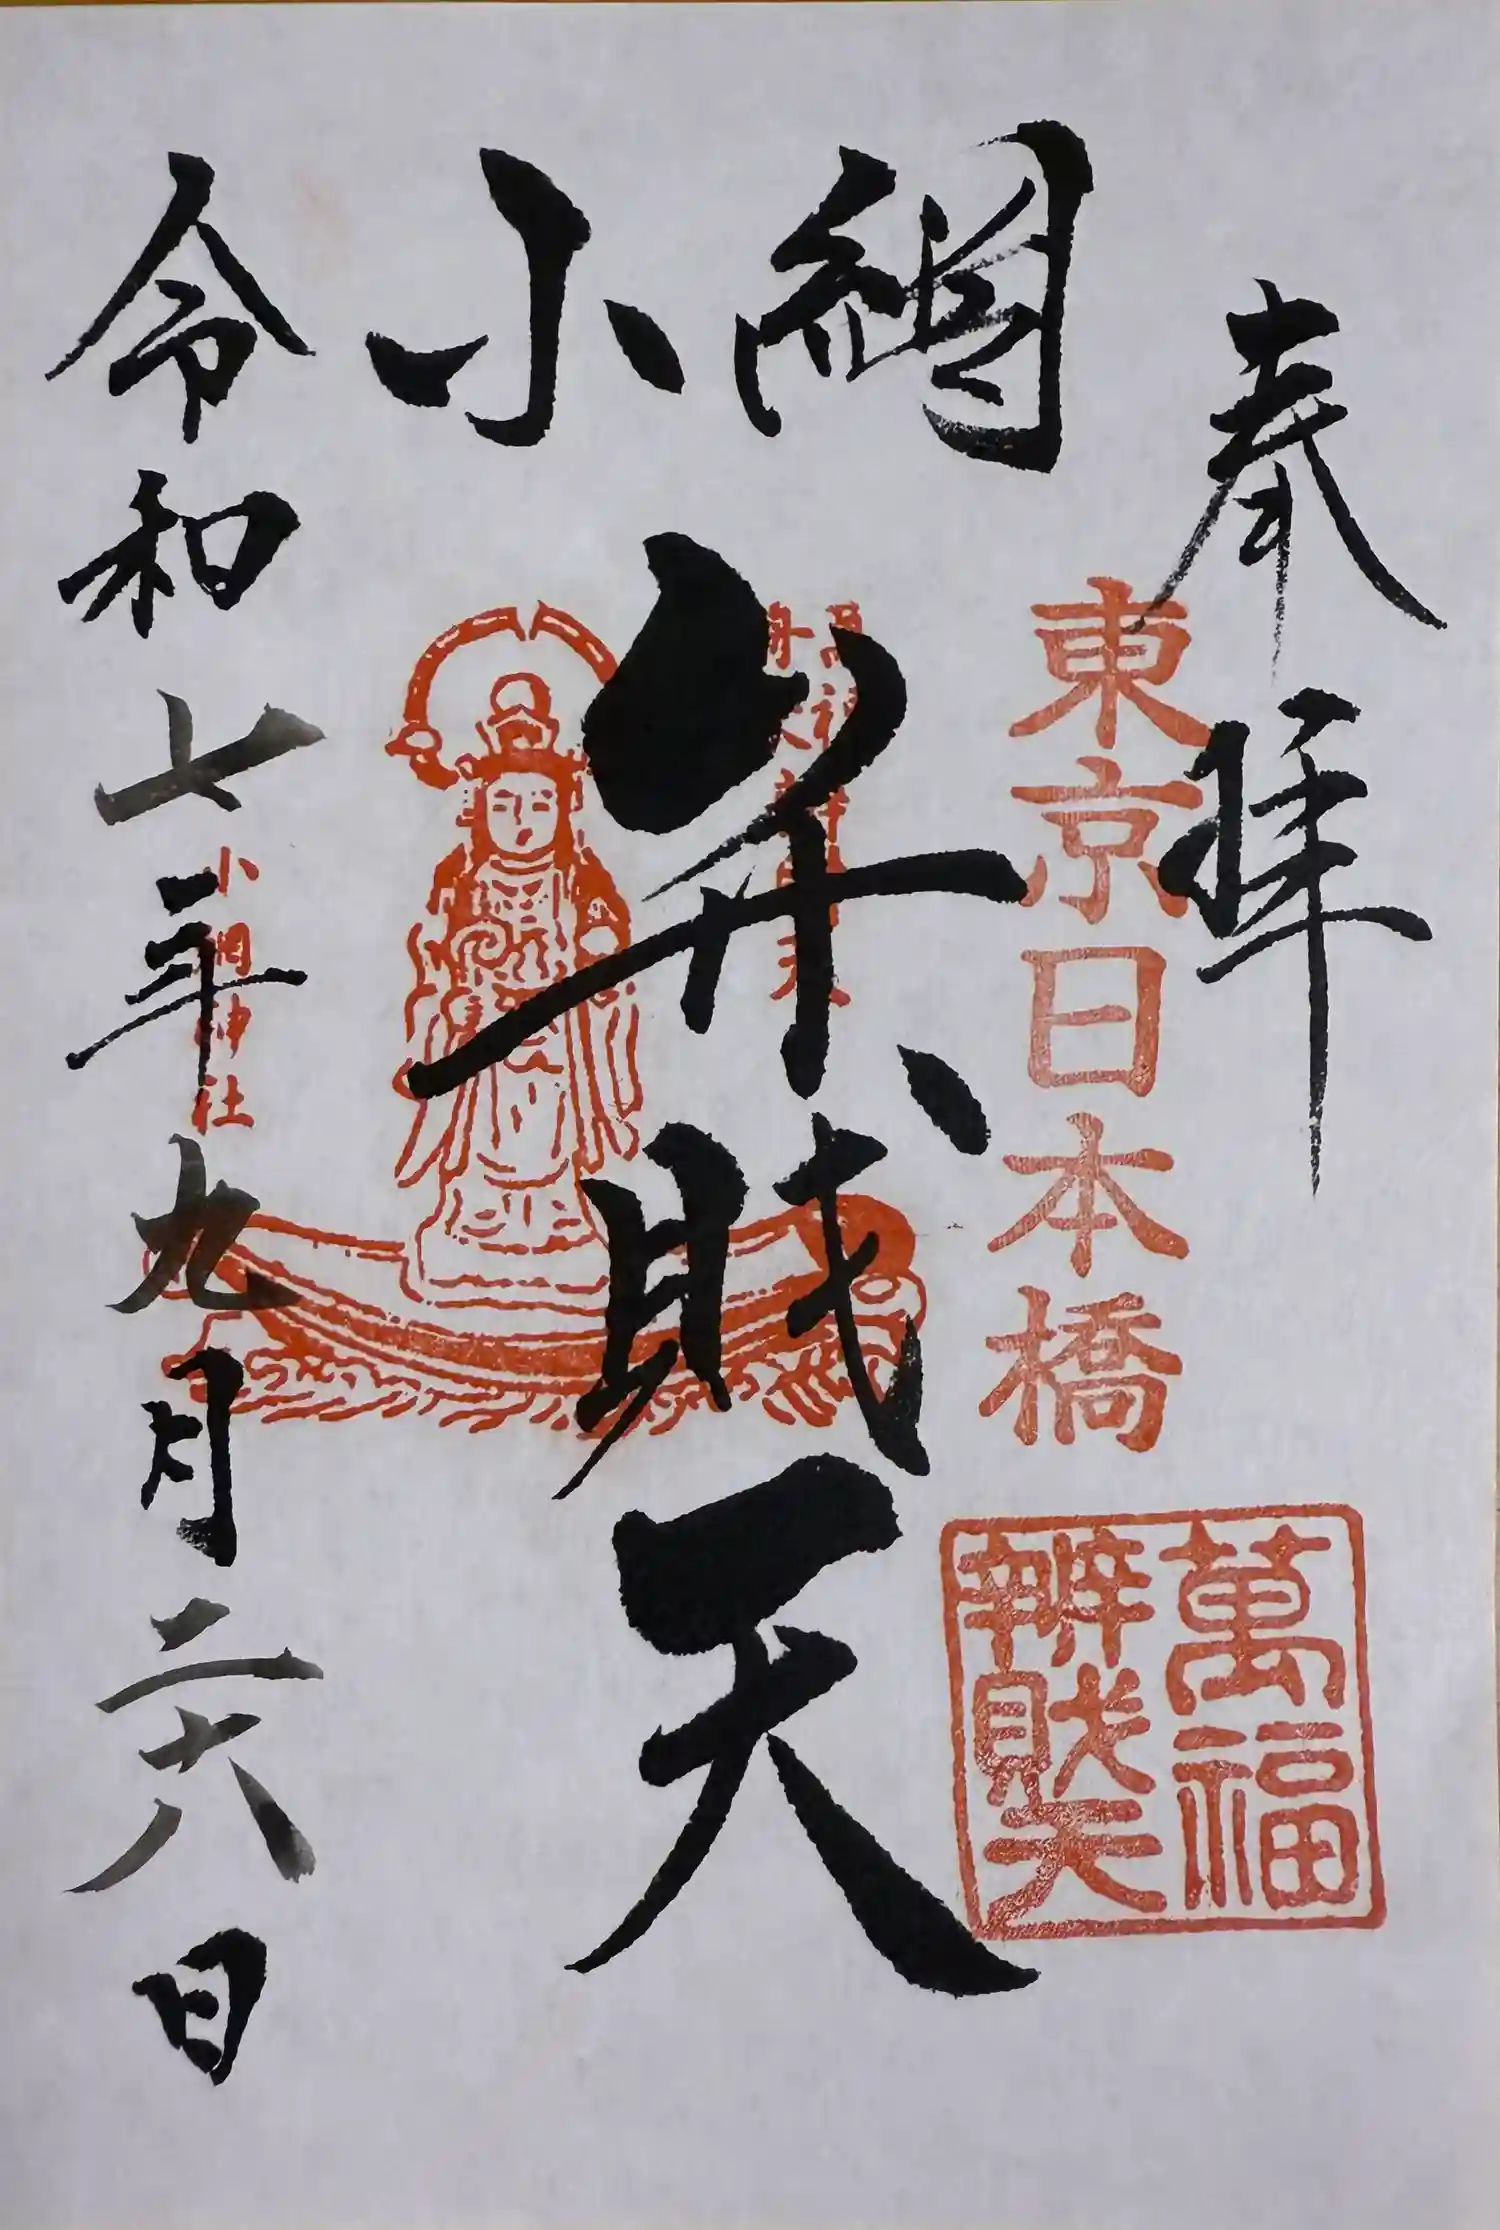 奉拝
東京日本橋
萬福
辨財天
小網
弁財天
小網神社
令和七年九月二十八日